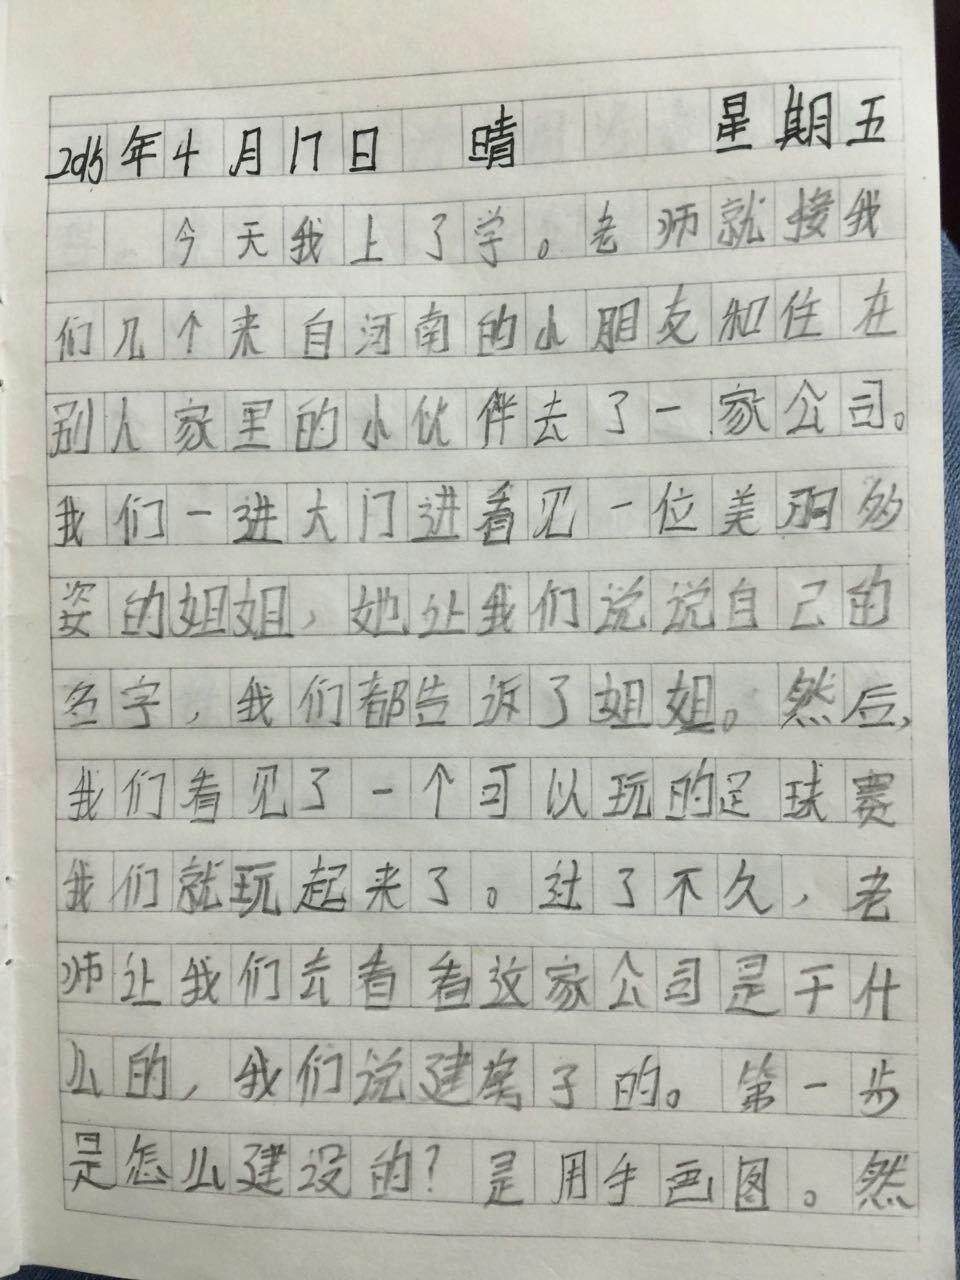 2015年4月17日 晴 星期五
今天我上了学。老师就接我
们几个来自河南的小朋友和住在
别人家里的小伙伴去了一家公司。
我们一进大门进看见一位美丽多
姿的姐姐，她让我们说说自己的
名字，我们都告诉了姐姐。然后，
我们看见了一个可以玩的足球赛
我们就玩起来了。过了不久，老
师让我们去看看这家公司是干什
么的，我们说建房子的。第一步
是怎么建设的？是用手画图。然